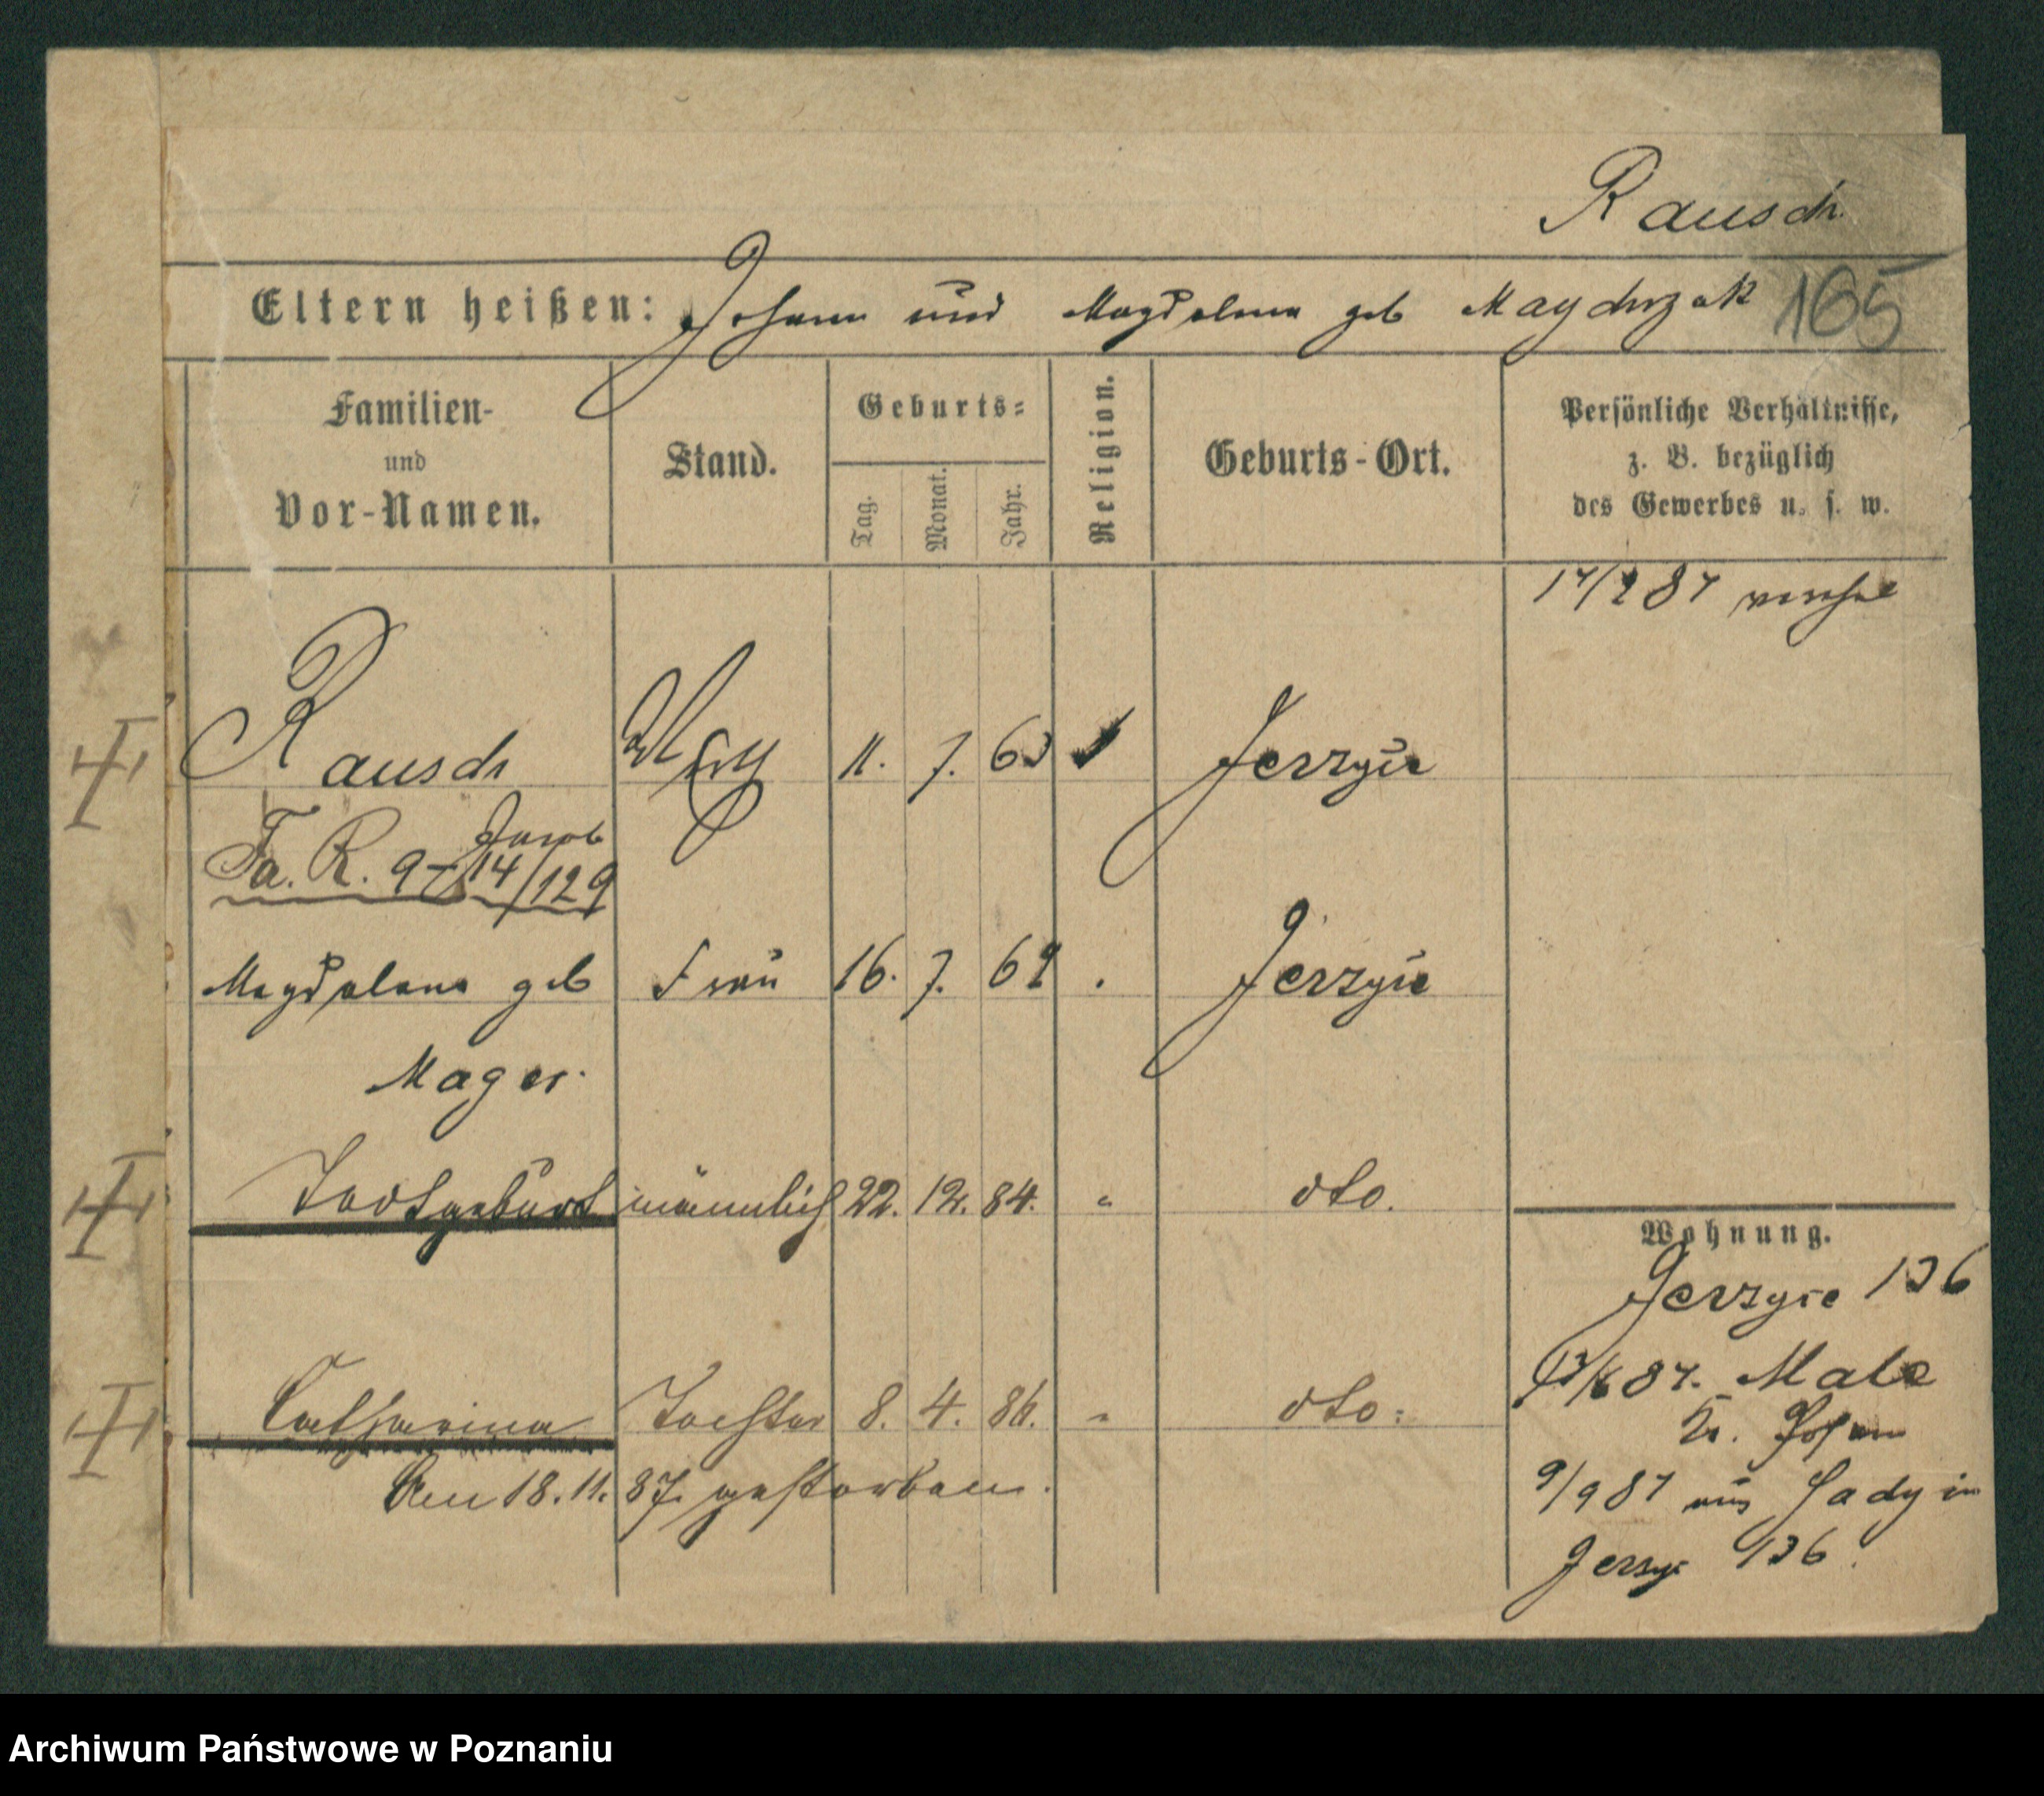 Rausch
Eltern heißen: Johann und Magdalena geb Maydrzak 165
Familien- und Vor-Namen.
Stand.
Geburts-
Tag. Monat. Jahr.
Religion.
Geburts-Ort.
Persönliche Verhältnisse,
z. B. bezüglich
des Gewerbes u. s. w.
87
Rausch 11. 7. 63 Jerzyce
Jacob
Fa. R. 97 14/129
Magdalena geb Frau 16. 7. 6 Jerzyce
Mager.
Todtgeburt männlich 22. 12. 84. " dto.
Wohnung.
Jerzyce 136
Catharina Tochter 8. 4. 86. " dto:
Am 18. 11. 87. gestorben.
87.
Kr. Posen
9/9 87 aus Sady in
Jerzyc 136.
Archiwum Państwowe w Poznaniu